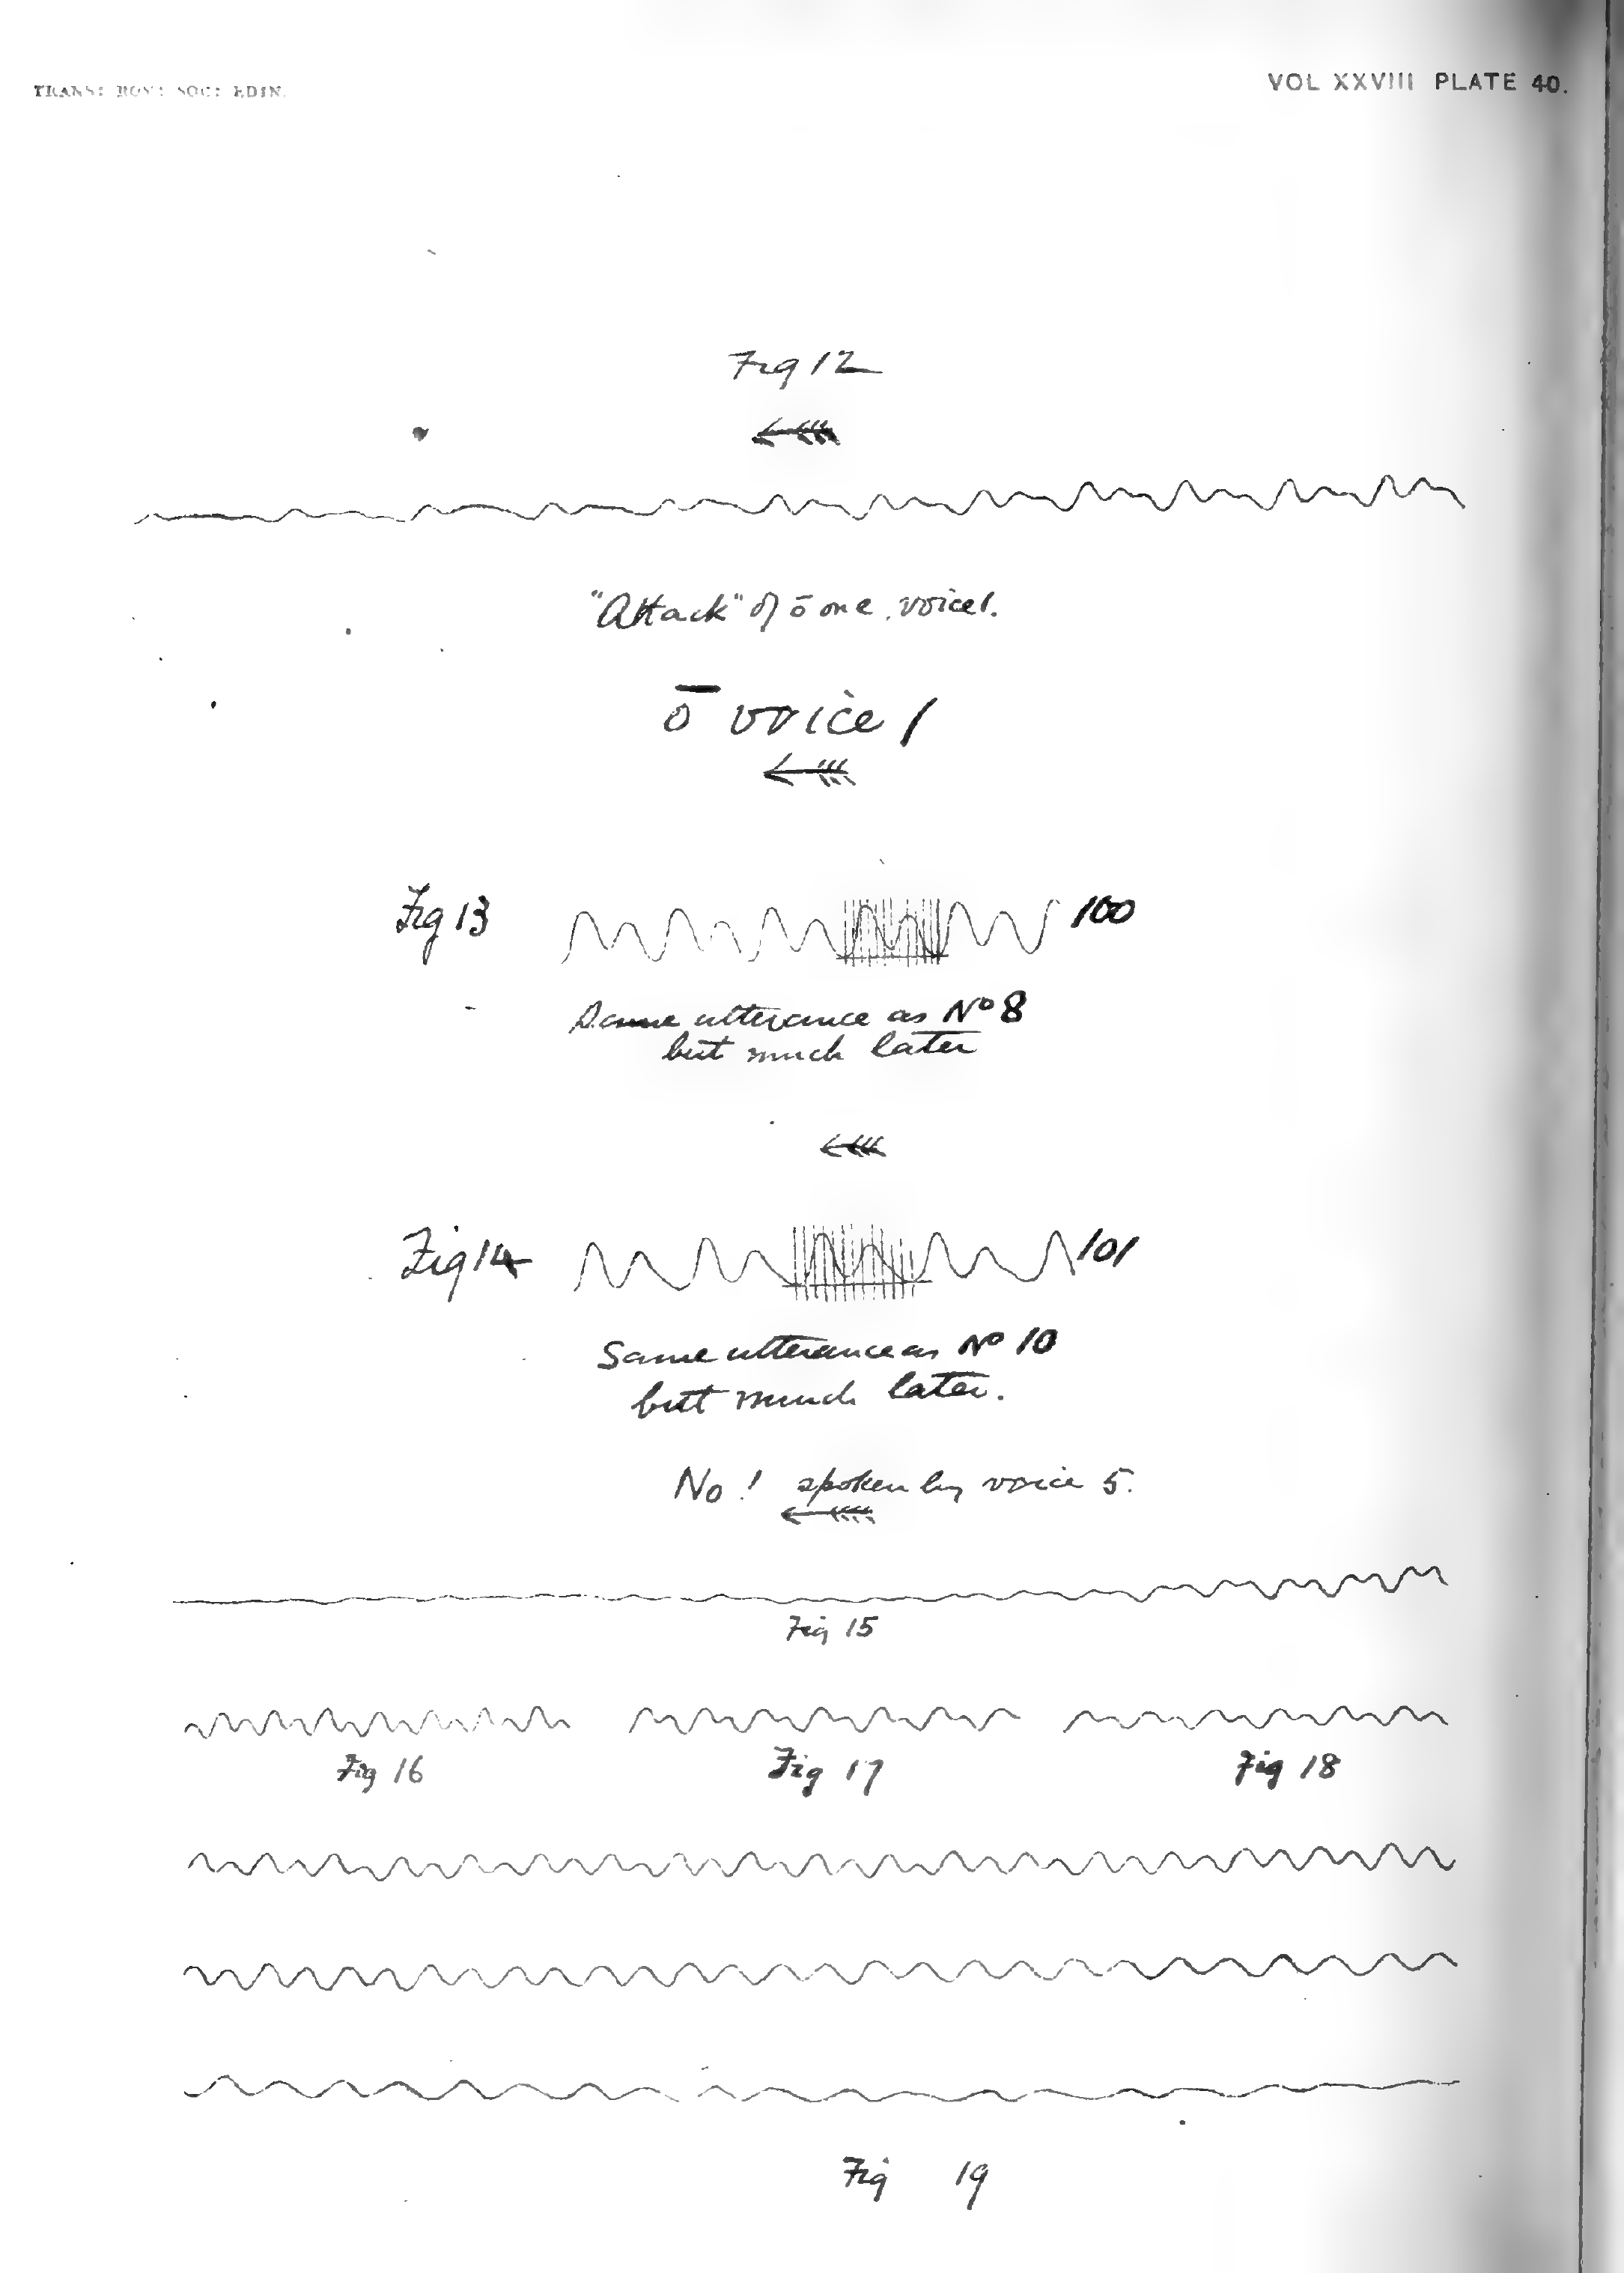 TRANS: ROY: SOC: EDIN.
VOL XXVIII PLATE 40.
Fig 12
"Attack" of ō one voice 1.
ō voice 1
Fig 13
100
Same utterance as No 8
but much later
Fig 14
101
Same utterance as No 10
but much later.
No! spoken by voice 5.
Fig 15
Fig 16
Fig 17
Fig 18
Fig 19